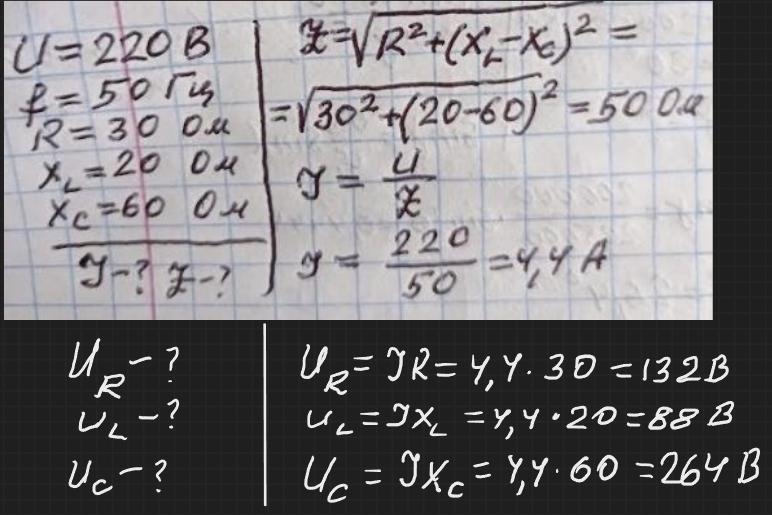 U = 220 В
f = 50 Гц
R = 30 Ом
X_L = 20 Ом
X_C = 60 Ом
I - ? Z - ?
Z = √R² + (X_L - X_C)² =
= √30² + (20 - 60)² = 50 Ом
I = U/Z
I = 220/50 = 4,4 А
U_R - ?
U_L - ?
U_C - ?
U_R = IR = 4,4 · 30 = 132 В
U_L = IX_L = 4,4 · 20 = 88 В
U_C = IX_C = 4,4 · 60 = 264 В